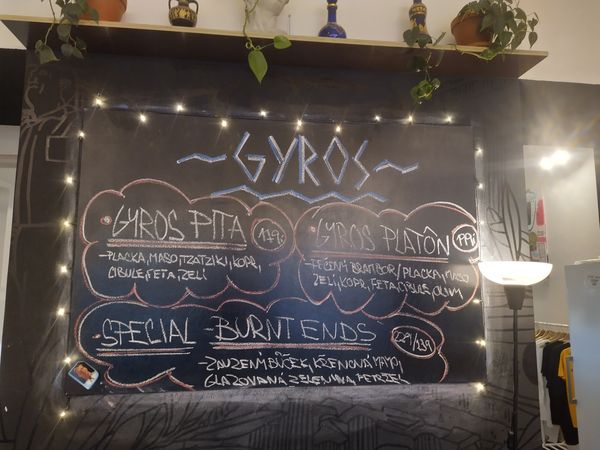 ~GYROS~
GYROS PITA 179,-
- PLACKA, MASO, TZATZIKI, KOPR,
CIBULE, FETA, ZELÍ
GYROS PLATÔN 199,-
BRAMBOR / PLACKA, MASO
ZELÍ, KOPR, FETA, CIBULE,
SPECIAL - BURNT ENDS
- UZENÝ BŮČEK, KŘENOVÁ MAYO,
GLAZOVANÁ ZELENINA, PETRŽEL